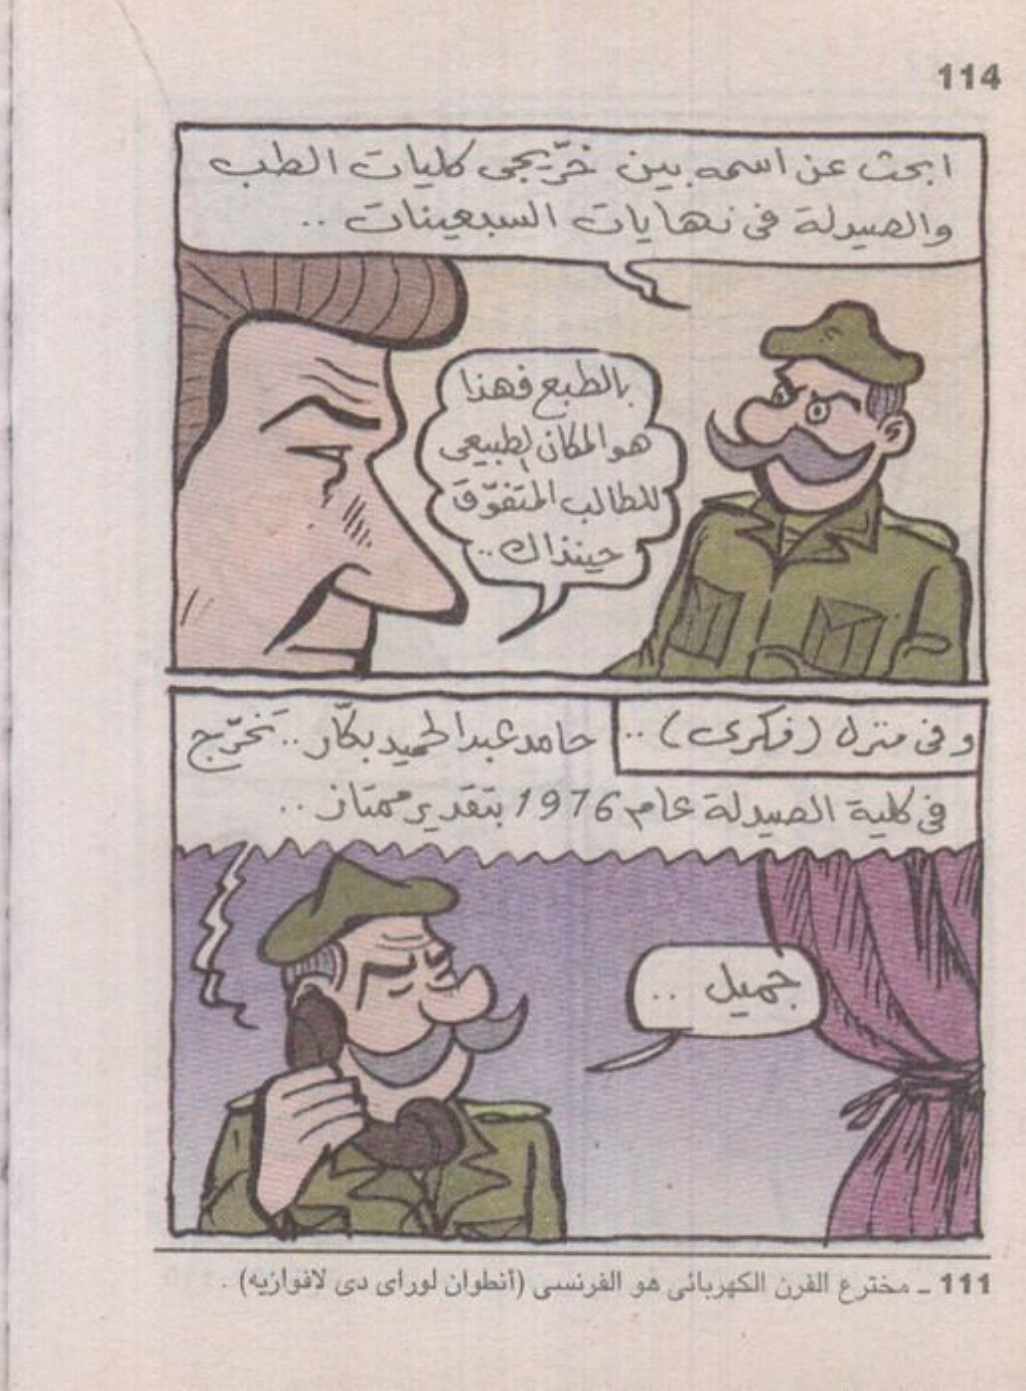 114
ابحث عن اسمه بين خرّيجى كليات الطب
والصيدلة فى نهايات السبعينات ..
بالطبع فهذا
هو المكان الطبيعى
للطالب المتفوّق
حينذاك ..
وفى منزل (فكرى) ..
حامد عبد الحميد بكّار .. تخرّج
فى كلية الصيدلة عام 1976 بتقدير ممتاز ..
جميل ..
111 ـ مخترع الفرن الكهربائى هو الفرنسى (أنطوان لوراى دى لافوازيه) .